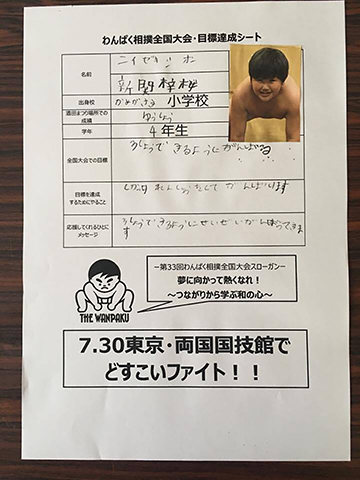 わんぱく相撲全国大会・目標達成シート
名前
ニイゼキ シオン
新関
出身校
かめがさき 小学校
酒田まつり場所での
成績
ゆうしょう
学年
4年生
全国大会での目標
うしょうできるようにがんばる
目標を達成
するためにやること
しっかりれんしゅうをしてがんばります
応援してくれるひとに
メッセージ
THE WANPAKU
ー第33回わんぱく相撲全国大会スローガンー
夢に向かって熱くなれ！
～つながりから学ぶ和の心～
7.30東京・両国国技館で
どすこいファイト！！